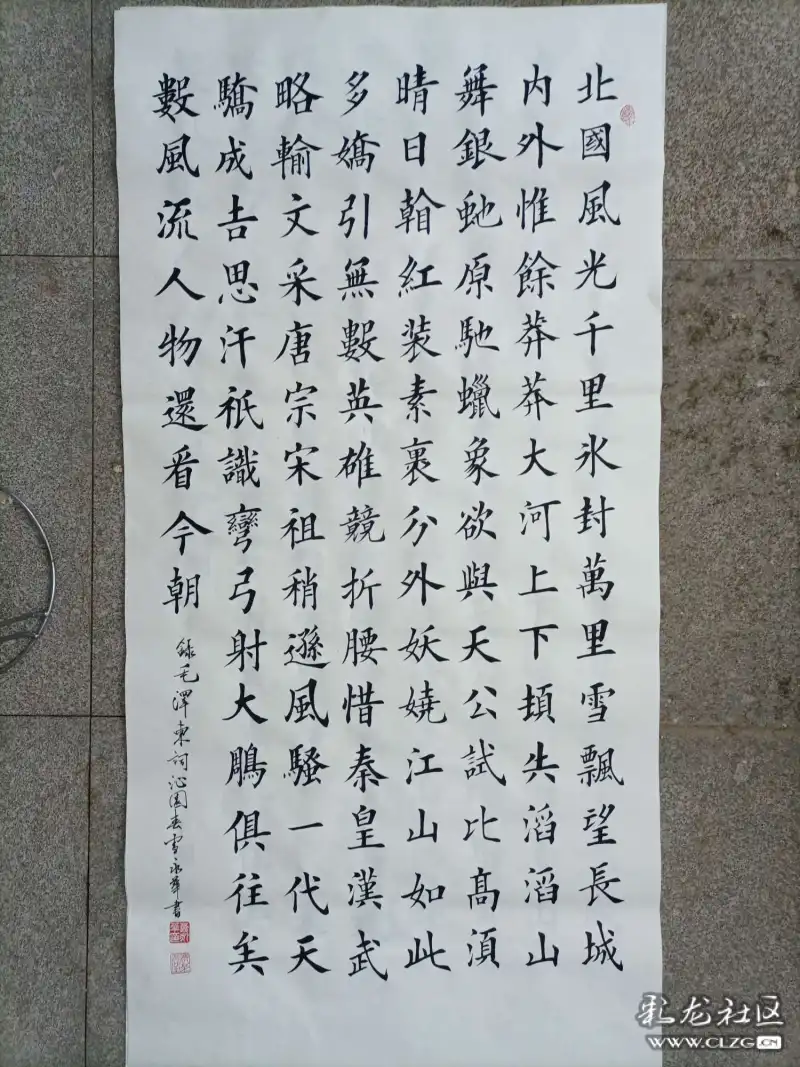 北國風光千里氷封萬里雪飄望長城
内外惟餘莽莽大河上下頓失滔滔山
舞銀虵原馳蠟象欲與天公試比髙湏
晴日紅装素裹分外妖嬈江山如此
多嬌引無數英雄競折腰惜秦皇漢武
略輸文采唐宗宋祖稍遜風騷一代天
驕成吉思汗祗識彎弓射大鵰俱往矣
數風流人物還看今朝
錄毛澤東詞沁園春雪永華書
彩龙社区
WWW.CLZG.CN